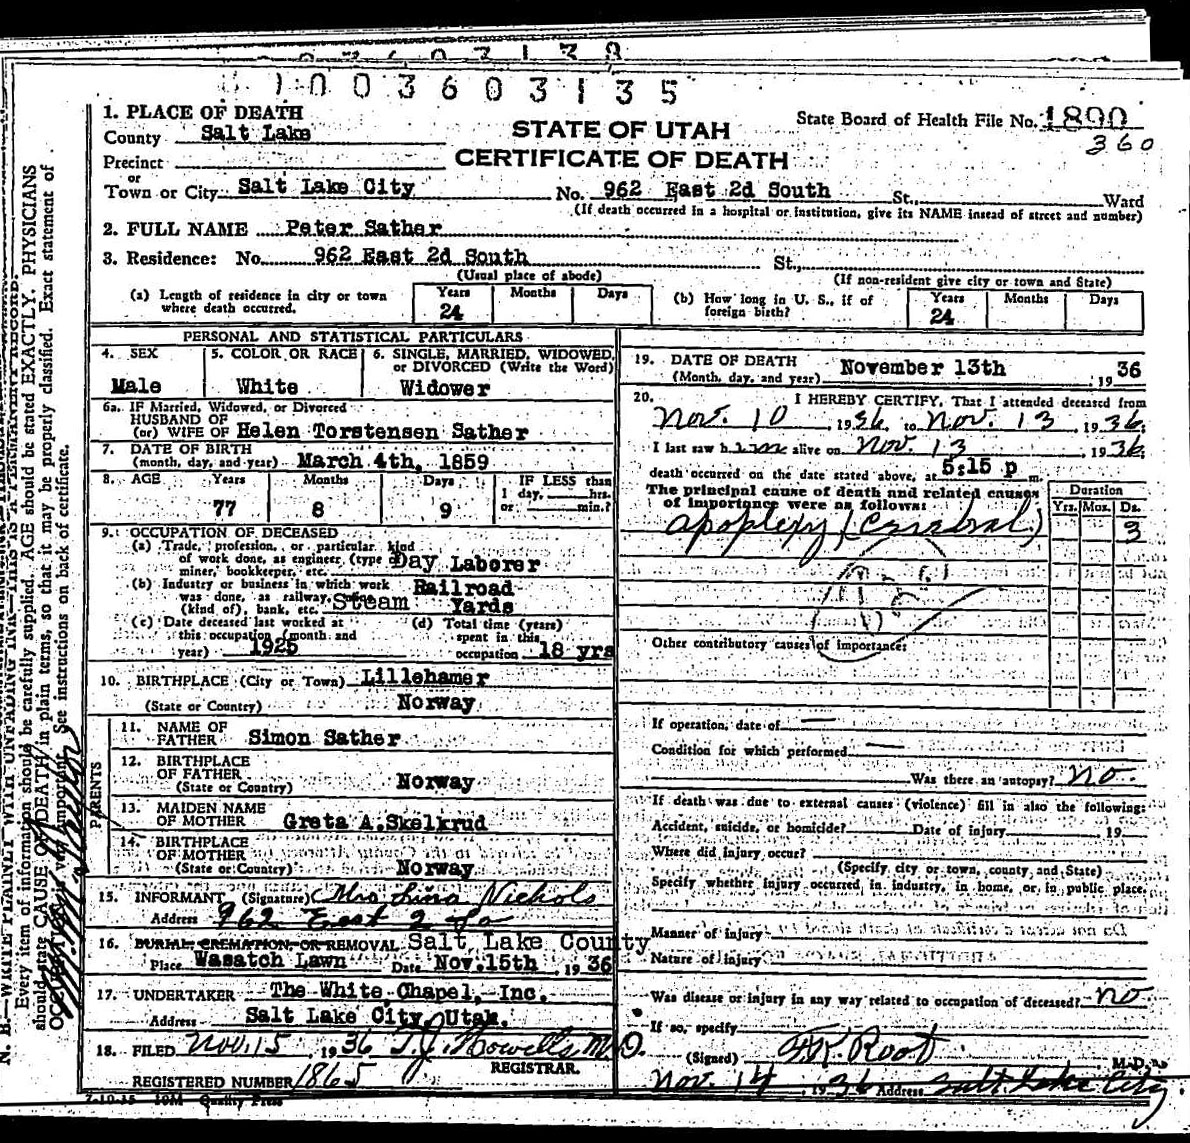 003603135
1. PLACE OF DEATH
County Salt Lake
STATE OF UTAH
State Board of Health File No. 1890
360
Precinct
CERTIFICATE OF DEATH
or
Town or City Salt Lake City No. 962 East 2d South St., Ward
(If death occurred in a hospital or institution, give its NAME instead of street and number)
2. FULL NAME Peter Sather
3. Residence: No. 962 East 2d South St.,
(Usual place of abode) (If non-resident give city or town and State)
(a) Length of residence in city or town where death occurred. Years 24 Months Days
(b) How long in U. S., if of foreign birth? Years 24 Months Days
PERSONAL AND STATISTICAL PARTICULARS
4. SEX Male
5. COLOR OR RACE White
6. SINGLE, MARRIED, WIDOWED, or DIVORCED (Write the Word) Widower
6a. IF Married, Widowed, or Divorced
HUSBAND OF
(or) WIFE OF Helen Torstensen Sather
7. DATE OF BIRTH
(month, day, and year) March 4th, 1859
8. AGE Years 77 Months 8 Days 9 IF LESS than 1 day, hrs. or min.?
9. OCCUPATION OF DECEASED
(a) Trade, profession, or particular kind
of work done, as engineer (type
miner, bookkeeper, etc. Day Laborer
(b) Industry or business in which work
was done, as railway,
(kind of), bank, etc. Steam Railroad Yards
(c) Date deceased last worked at
this occupation (month and
year) 1925
(d) Total time (years)
spent in this
occupation 18 yrs
10. BIRTHPLACE (City or Town) Lillehamer
(State or Country) Norway
PARENTS
11. NAME OF
FATHER Simon Sather
12. BIRTHPLACE
OF FATHER
(State or Country) Norway
13. MAIDEN NAME
OF MOTHER Greta A.Skelkrud
14. BIRTHPLACE
OF MOTHER
(State or Country) Norway
15. INFORMANT (Signature) Mrs Lina Nichols
Address 962 East 2 So
16. BURIAL, CREMATION, OR REMOVAL Salt Lake County
Place Wasatch Lawn Date Nov.15th, 1936
17. UNDERTAKER The White Chapel, Inc.
Address Salt Lake City, Utah.
18. FILED Nov. 15, 1936 T.J. Howells M.D.
REGISTRAR.
REGISTERED NUMBER 1865
7-10-35 10M Quality Press
19. DATE OF DEATH
(Month, day, and year) November 13th, 1936
20. I HEREBY CERTIFY, That I attended deceased from
Nov. 10, 1936, to Nov. 13, 1936;
I last saw him alive on Nov. 13, 1936;
death occurred on the date stated above, at 5:15 p m.
The principal cause of death and related causes
of importance were as follows:
Duration
Yrs. Mos. Ds.
apoplexy (Cerebral) 3
Other contributory causes of importance:
If operation, date of —
Condition for which performed —
Was there an autopsy? no.
If death was due to external causes (violence) fill in also the following:
Accident, suicide, or homicide? Date of injury 19
Where did injury occur?
(Specify city or town, county, and State)
Specify whether injury occurred in industry, in home, or in public place.
Manner of injury
Nature of injury
Was disease or injury in any way related to occupation of deceased? no
If so, specify
(Signed) F.K. Root M.D.
Nov. 14, 1936 Address Salt Lake City
N. B.—WRITE PLAINLY WITH UNFADING INK—THIS IS A PERMANENT RECORD.
Every item of information should be carefully supplied. AGE should be stated EXACTLY. PHYSICIANS
should state CAUSE OF DEATH in plain terms, so that it may be properly classified. Exact statement of
OCCUPATION is very important. See instructions on back of certificate.